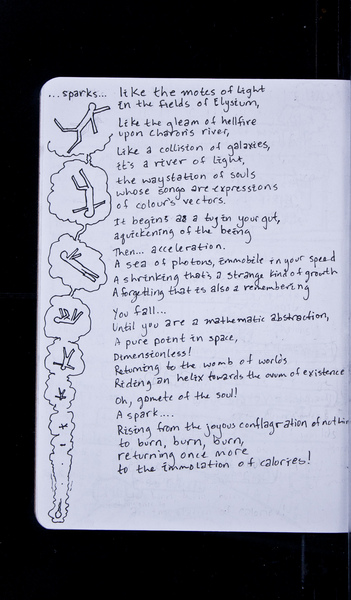 ...sparks... like the motes of light
in the fields of Elysium,
Like the gleam of hellfire
upon Charon's river,
Like a collision of galaxies,
it's a river of light,
the waystation of souls
whose songs are expressions
of colour's vectors.
It begins as a tug in your gut,
a quickening of the being
Then... acceleration.
A sea of photons, immobile in your speed
A shrinking that's a strange kind of growth
A forgetting that is also a remembering
You fall...
Until you are a mathematic abstraction,
A pure point in space,
Dimensionless!
Returning to the womb of worlds
Riding an helix towards the ovum of existence
Oh, gamete of the soul!
A spark....
Rising from the joyous conflagration of
to burn, burn, burn,
returning once more
to the immolation of calories!